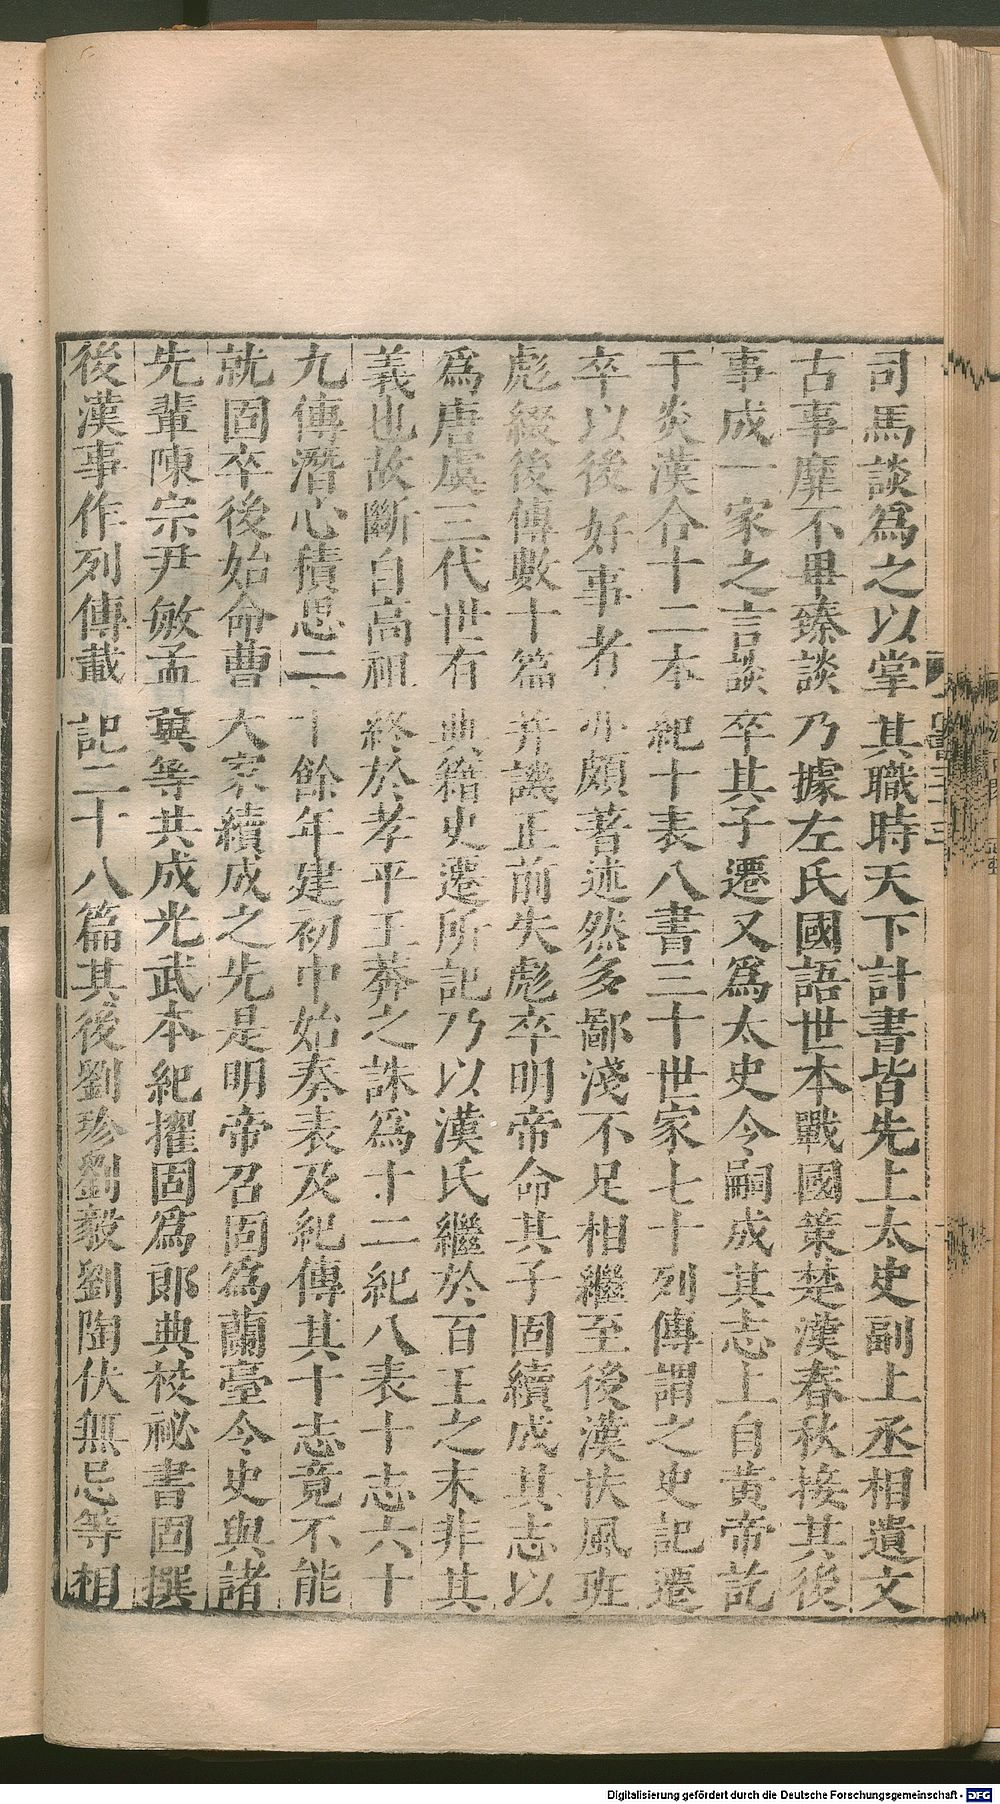 司馬談爲之以掌其職時天下計書皆先上太史副上丞相遺文
古事靡不畢臻談乃據左氏國語世本戰國策楚漢春秋接其後
事成一家之言談卒其子遷又爲太史令嗣成其志上自黃帝訖
于炎漢合十二本紀十表八書三十世家七十列傳謂之史記遷
卒以後好事者亦頗著述然多鄙淺不足相繼至後漢扶風班
彪綴後傳數十篇并譏正前失彪卒明帝命其子固續成其志以
爲唐虞三代世有典籍史遷所記乃以漢氏繼於百王之末非其
義也故斷自高祖終於孝平王莽之誅爲十二紀八表十志六十
九傳潛心積思二十餘年建初中始奏表及紀傳其十志竟不能
就固卒後始命曹大家續成之先是明帝召固爲蘭臺令史與諸
先輩陳宗尹敏孟冀等共成光武本紀擢固爲郎典校祕書固撰
後漢事作列傳載記二十八篇其後劉珍劉毅劉陶伏無忌等相
Digitalisierung gefördert durch die Deutsche Forschungsgemeinschaft - DFG